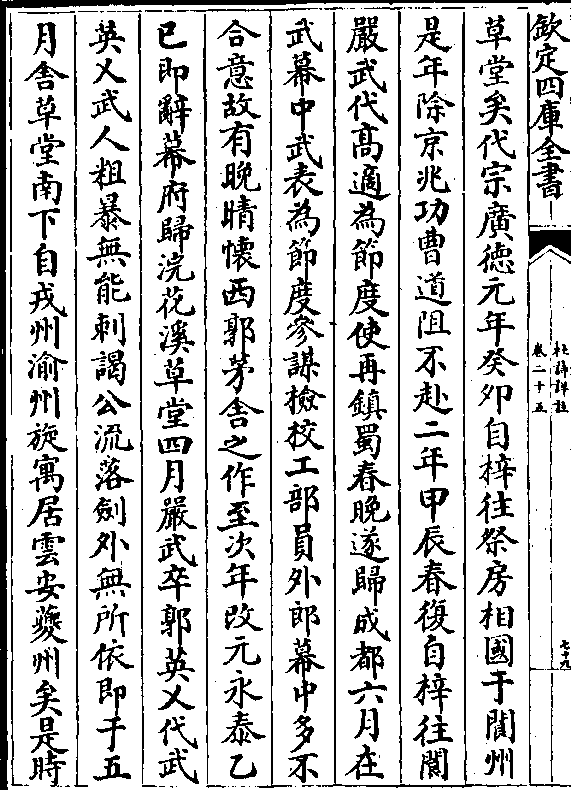 欽定四庫全書
杜詩詳註
卷二十五
七十九
草堂矣代宗廣徳元年癸卯自梓往祭房相國于閬州
是年除京兆功曹道阻不赴二年甲辰春復自梓往閬
嚴武代髙適為節度使再鎮蜀春晚遂歸成都六月在
武幕中武表為節度參謀檢校工部員外郎幕中多不
合意故有晚晴懷西郭茅舍之作至次年改元永泰乙
已即辭幕府歸浣花溪草堂四月嚴武卒郭英乂代武
英乂武人粗暴無能刺謁公流落劍外無所依即于五
月舍草堂南下自戎州渝州旋寓居雲安夔州矣是時